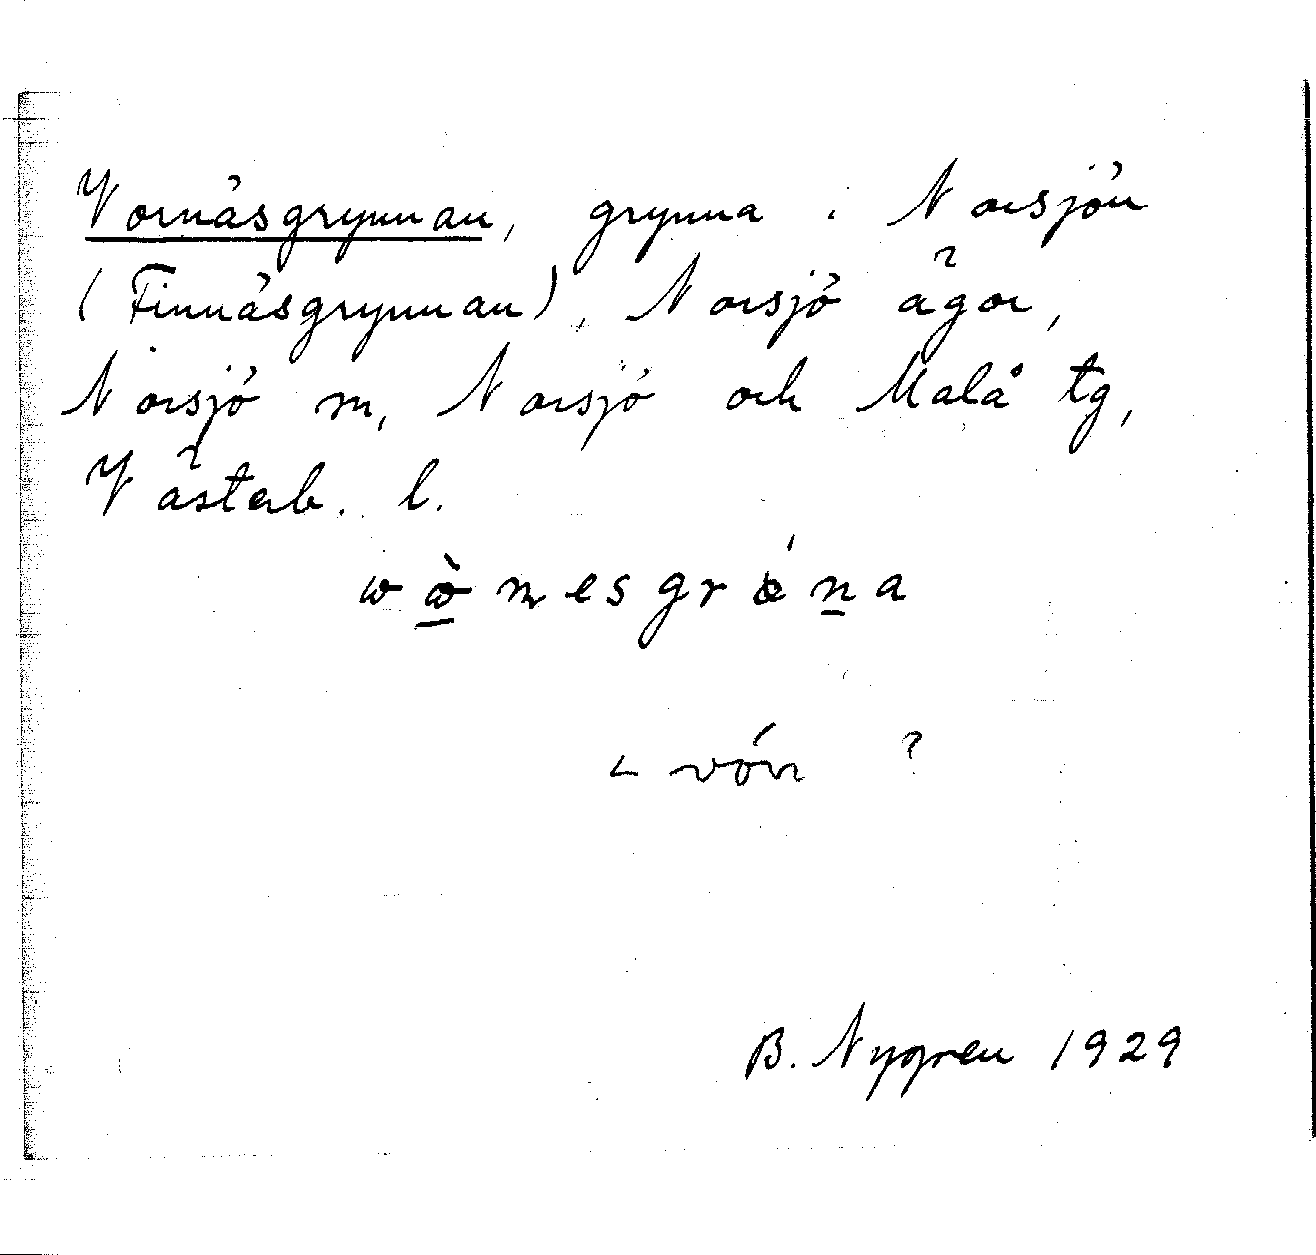 Vornäsgrynnan, grynna i Norsjön
(Finnäsgrynnan), Norsjö ägor,
Norsjö sn, Norsjö och Malå tg,
Västerb. l.
< vón ?
B. Nygren 1929